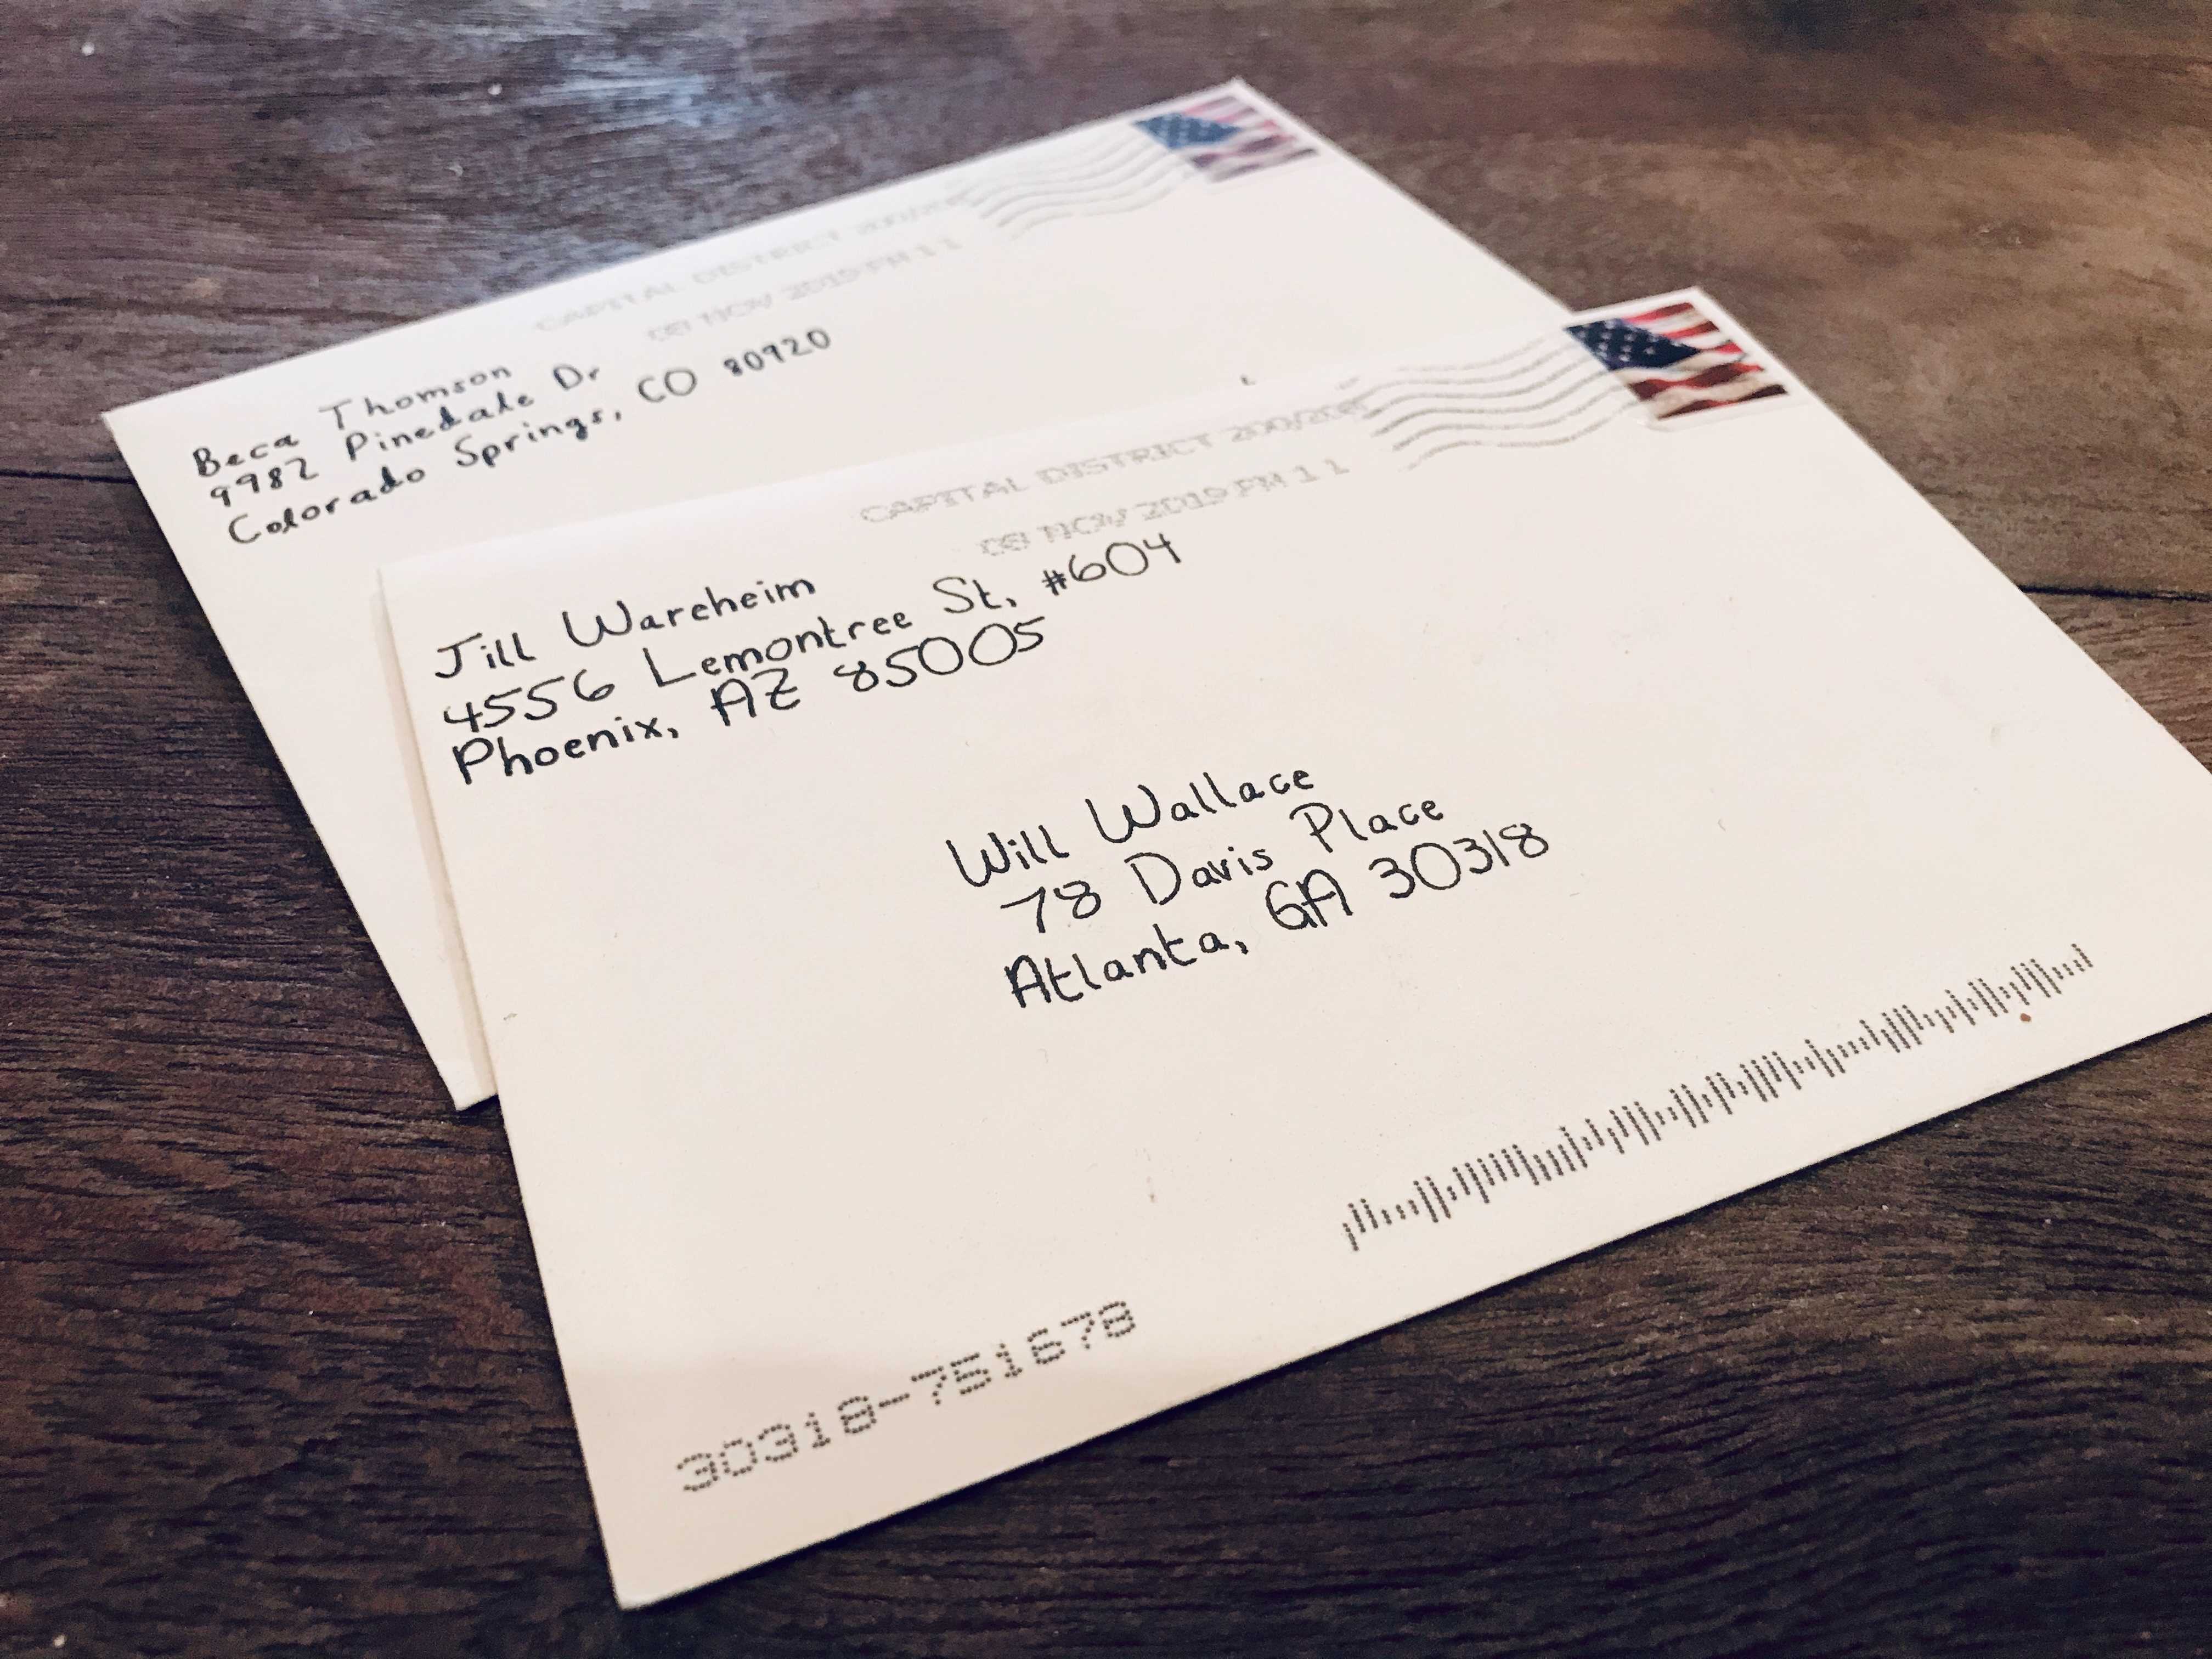 CAPITAL DISTRICT 200/208
08 NOV 2019 PM 1 1
Beca Thomson
9982 Pinedale Dr
Colorado Springs, CO 80920
CAPITAL DISTRICT 200/208
08 NOV 2019 PM 1 1
Jill Wareheim
4556 Lemontree St, #604
Phoenix, AZ 85005
Will Wallace
78 Davis Place
Atlanta, GA 30318
30318-751678